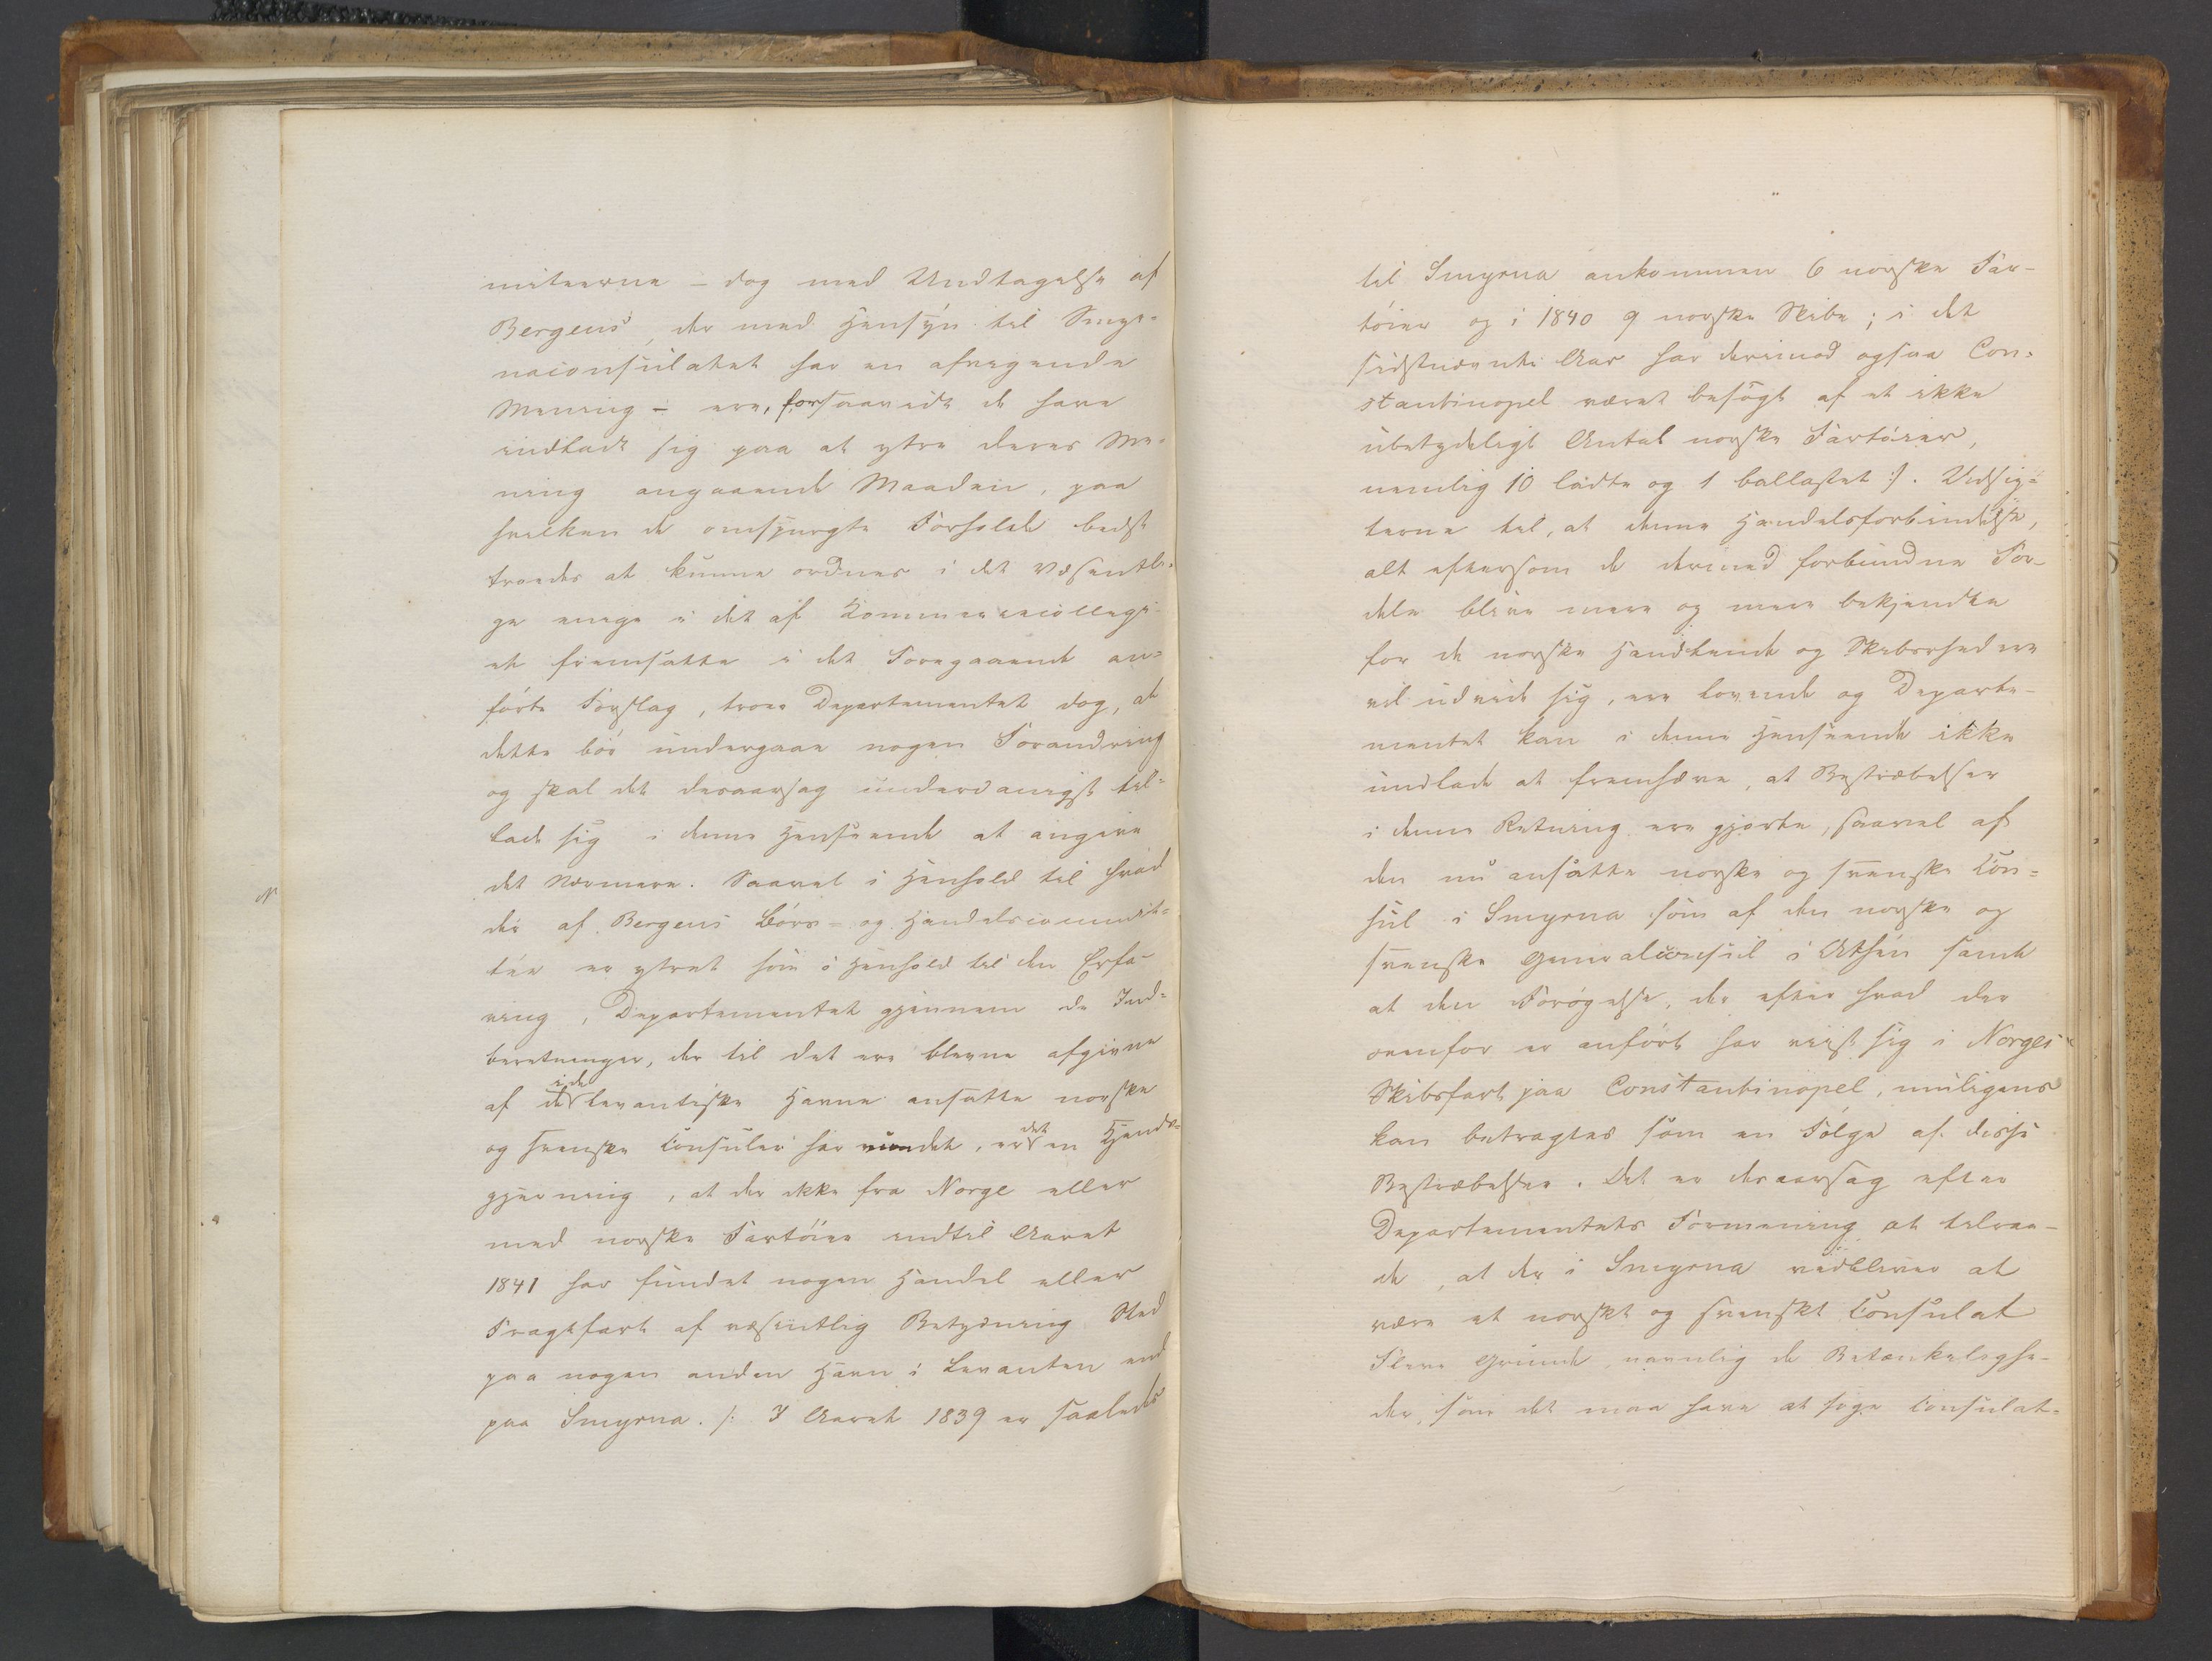 miteerne – dog med Undtagelse af
Bergens, der med Hensyn til Smyr-
naconsulatet har en afvigende
Mening – ere, forsaavidt de have
indladt sig paa at ytre deres Me-
ning angaaende Maaden, paa
hvilken de omspurgte Forholde bedst
troedes at kunne ordnes i det Væsentli-
ge enige i det af Kommercecollegi-
et fremsatte i det Foregaaende an-
førte Forslag, troer Departementet dog, at
dette bør undergaae nogen Forandring
og skal det desaarsag underdanigst til-
lade sig i denne Henseende at angive
det Nærmere. Saavel i Henhold til hvad
der af Bergens Børs- og Handelscommit-
tée er ytret som i Henhold til den Erfa-
ring, Departementet gjennem de Ind-
beretninger, der til det ere blevne afgivne
af de i de levantiske Havne ansatte norske
og svenske Consuler har vundet, er det en Kjends-
gjerning, at der ikke fra Norge eller
med norske Fartøier indtil Aaret
1841 har fundet nogen Handel eller
Fragtfart af væsentlig Betydning Sted
paa nogen anden Havn i Levanten end
paa Smyrna. /: I Aaret 1839 er saaledes
til Smyrna ankommen 6 norske Far-
tøier og i 1840 9 norske Skibe; i det
sidstnævnte Aar har derimod ogsaa Con-
stantinopel været besøgt af et ikke
ubetydeligt Antal norske Fartøier,
nemlig 10 ladte og 1 ballastet :/. Udsig-
terne til, at denne Handelsforbindelse,
alt eftersom de dermed forbundne For-
dele blive mere og mere bekjendte
for de norske Handlende og Skibsrhedere
vil udvide sig, ere lovende og Departe-
mentet kan i denne Henseende ikke
undlade at fremhæve, at Bestræbelser
i denne Retning ere gjorte, saavel af
den nu ansatte norske og svenske Con-
sul i Smyrna som af den norske og
svenske Generalconsul i Athén samt
at den Forøgelse, der efter hvad der
ovenfor er anført har viist sig i Norges
Skibsfart paa Constantinopel, muligens
kan betragtes som en Følge af disse
Bestræbelser. Det er desaarsag efter
Departementets Formening at tilraa-
de, at der i Smyrna vedbliver at
være et norskt og svenskt Consulat
Flere Grunde navnlig de Betænkelighe-
der, som det maa have at søge Consulat-